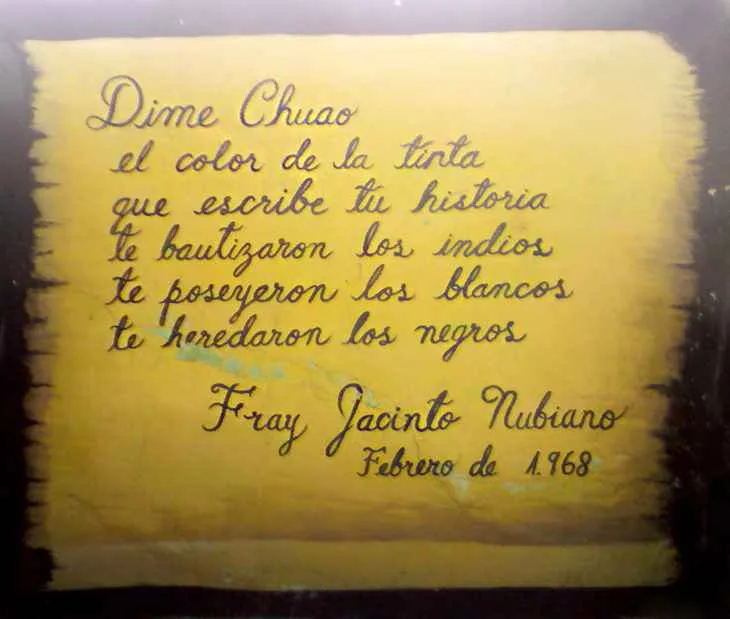 Dime Chuao
el color de la tinta
que escribe tu historia
te bautizaron los indios
te poseyeron los blancos
te heredaron los negros
Fray Jacinto Nubiano
Febrero de 1.968